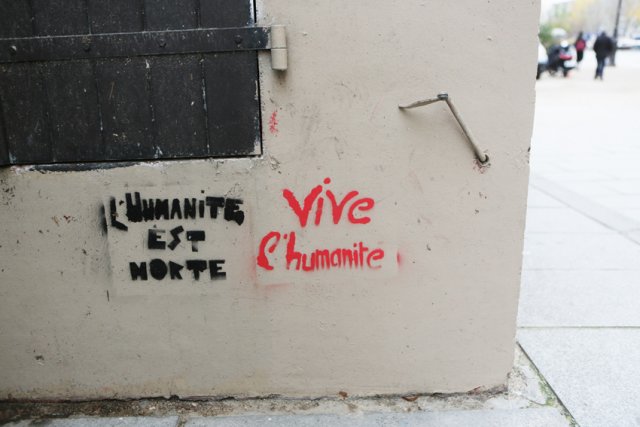 L'HUMANITE
EST
MORTE
Vive
l'humanite